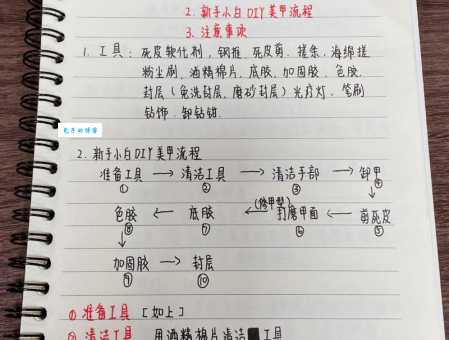 2. 新手小白DIY美甲流程
3. 注意事项
1. 工具：死皮软化剂，钢推，死皮剪，搓条，海绵搓
粉尘刷，酒精棉片，底胶，加固胶，色胶，
封层（免洗封层，磨砂封层）光疗灯，笔刷
钻饰，卸钻钳.
包子的博客
2. 新手小白DIY美甲流程
准备工具 → 清洁工具 → 清洁手部 → 卸甲
① ② ③ ④
(修甲型)
色胶 ← 底胶 ← 打磨甲面 ← 剪死皮
⑧ ⑦ ⑥ ⑤
加固胶 → 封层
⑨ ⑩
① 准备工具 [如上]
② 清洁工具 用酒精棉片清洁 工具